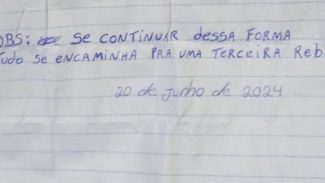 OBS: SE CONTINUAR dESSA FORMA
Tudo SE ENCAMINHA PRA UMA TERCEIRA Reb
20 de junho de 2024